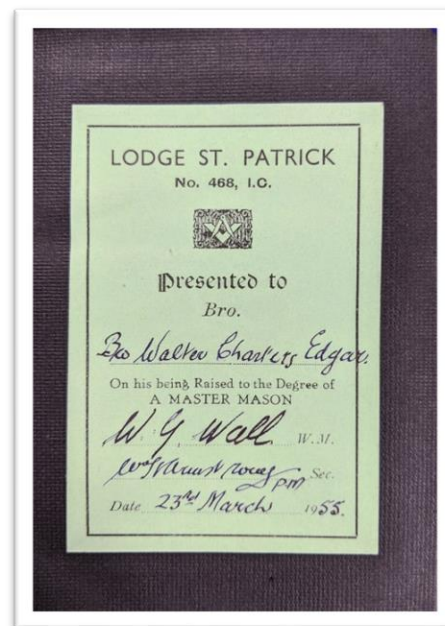 LODGE ST. PATRICK
No. 468, I.C.
Presented to
Bro.
Bro Walter Charters Edgar.
On his being Raised to the Degree of
A MASTER MASON
W. G. Wall W.M.
PM Sec.
Date 23rd March 1955.